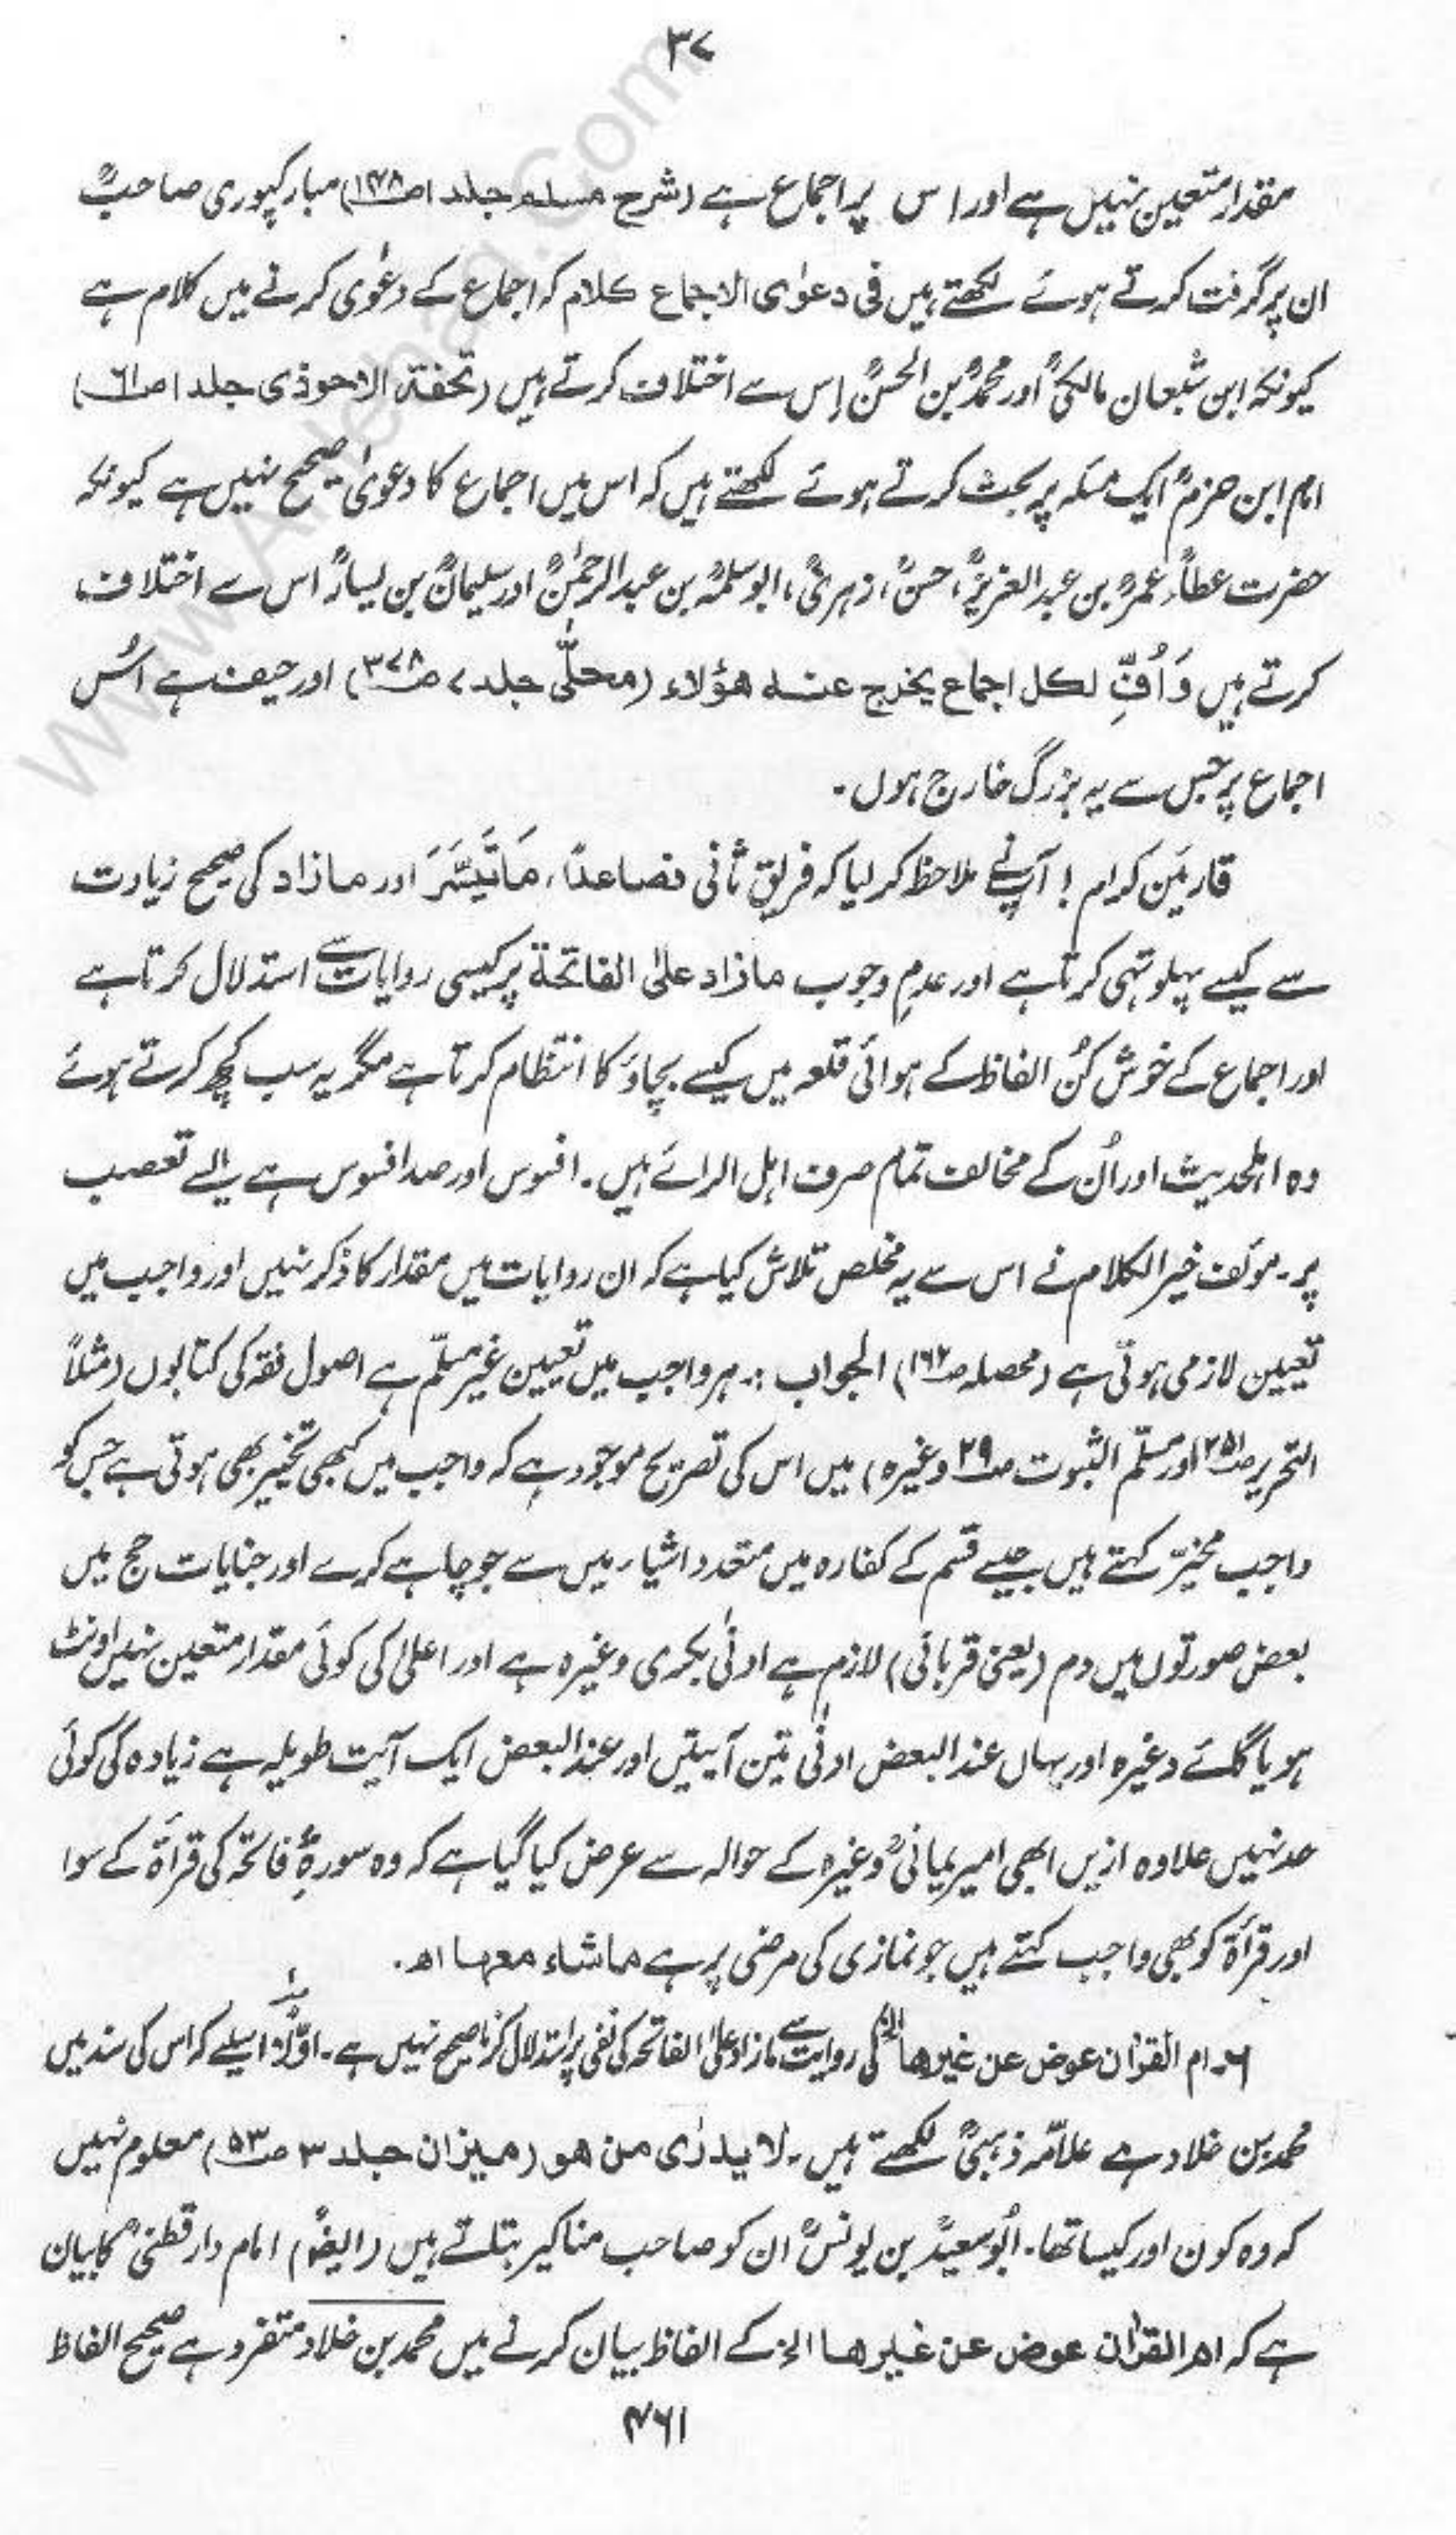 ۳۷
مقدار متعین نہیں ہے اور اس پر اجماع ہے (شرح مسلم جلد ۱ ص۱۴۸) مبارکپوری صاحبؒ
ان پر گرفت کرتے ہوئے لکھتے ہیں فی دعوٰی الاجماع کلام کہ اجماع کے دعوٰی کرنے میں کلام ہے
کیونکہ ابن شعبان مالکیؒ اور محمدؒ بن الحسنؒ اِس سے اختلاف کرتے ہیں (تحفۃ الاحوذی جلد ۱ ص۶۱)
امام ابن حزمؒ ایک مسئلہ پر بحث کرتے ہوئے لکھتے ہیں کہ اس میں اجماع کا دعوٰی صحیح نہیں ہے کیونکہ
حضرت عطاءؒ، عمرؒ بن عبدالعزیزؒ، حسنؒ، زہریؒ، ابوسلمہؒ بن عبدالرحمٰنؒ اور سلیمانؒ بن یسارؒ اس سے اختلاف
کرتے ہیں وَاُفٍّ لکل اجماع یخرج عنہ ھؤلاء (محلّٰی جلد ۷ ص۳۷۸) اور حیف ہے اُس
اجماع پر جس سے یہ بزرگ خارج ہوں۔
قارئین کرام! آپنے ملاحظہ کر لیا کہ فریق ثانی فصاعدًا، مَاتَیَسَّرَ اور مازاد کی صحیح زیادت
سے کیسے پہلو تہی کرتا ہے اور عدمِ وجوب مازاد علیٰ الفاتحۃ پر کیسی روایات سے استدلال کرتا ہے
اور اجماع کے خوش کُن الفاظ کے ہوائی قلعہ میں کیسے بچاؤ کا انتظام کرتا ہے مگر یہ سب کچھ کرتے ہوئے
وہ اہلحدیث اور اُن کے مخالف تمام صرف اہل الرائے ہیں۔ افسوس اور صد افسوس ہے ایسے تعصب
پر۔ مؤلف خیر الکلام نے اس سے یہ مخلص تلاش کیا ہے کہ ان روایات میں مقدار کا ذکر نہیں اور واجب میں
تعیین لازمی ہوتی ہے (محصلہ ص۱۹۲) الجواب :۔ ہر واجب میں تعیین غیر مسلّم ہے اصول فقہ کی کتابوں (مثلاً
التحریر ص۲۵۱ اور مسلّم الثبوت ص۲۹ وغیرہ) میں اس کی تصریح موجود ہے کہ واجب میں کبھی تخییر بھی ہوتی ہے جس کو
واجب مخیّر کہتے ہیں جیسے قسم کے کفارہ میں متعدد اشیاء میں سے جو چاہے کرے اور جنایات حج میں
بعض صورتوں میں دم (یعنی قربانی) لازم ہے ادنٰی بکری وغیرہ ہے اور اعلیٰ کی کوئی مقدار متعین نہیں اونٹ
ہو یا گائے وغیرہ اور یہاں عند البعض ادنٰی تین آیتیں اور عند البعض ایک آیت طویلہ ہے زیادہ کی کوئی
حد نہیں علاوہ ازیں ابھی امیر یمانیؒ وغیرہ کے حوالہ سے عرض کیا گیا ہے کہ وہ سورۂ فاتحہ کی قرأۃ کے سوا
اور قرأۃ کو بھی واجب کہتے ہیں جو نمازی کی مرضی پر ہے ماشاء معہا اھ۔
۶۔ ام القرآن عوض عن غیرھا الخ کی روایت سے مازاد علیٰ الفاتحہ کی نفی پر استدلال کرنا صحیح نہیں ہے۔ اوّلاً اسلیے کہ اس کی سند میں
محمد بن خلاد ہے علاّمہ ذہبیؒ لکھتے ہیں۔ لا یدرٰی من ھو (میزان جلد ۳ ص۵۳) معلوم نہیں
کہ وہ کون اور کیسا تھا۔ ابُوسعیدؒ بن یونسؒ ان کو صاحب مناکیر بتلاتے ہیں (ایضًا) امام دارقطنیؒ کا بیان
ہے کہ ام القرآن عوض عن غیرھا الخ کے الفاظ بیان کرنے میں محمد بن خلاد متفرد ہے صحیح الفاظ
۴۶۱
www.Ahlehaq.Com